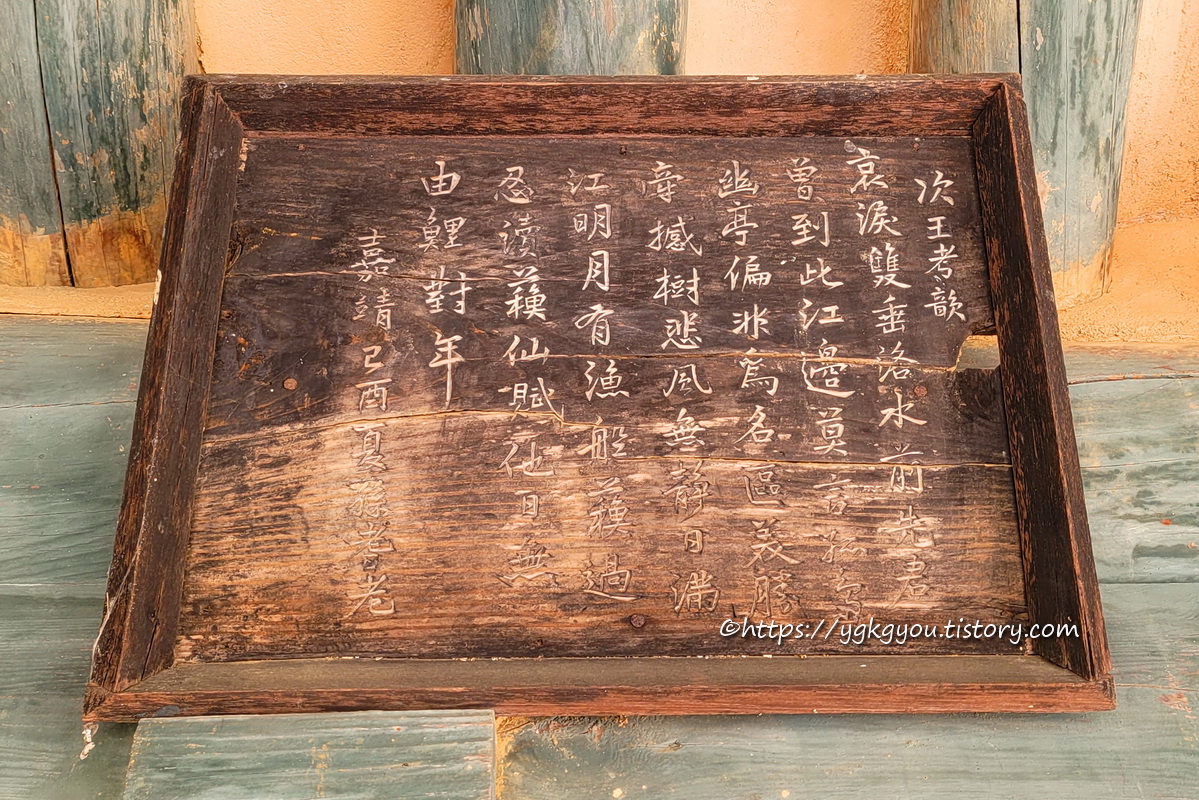 次王考韻
哀淚雙垂洛水前先君
曾到此江邊莫言孤
幽亭偏非爲名區美勝
牽撼樹悲風無靜日滿
江明月有漁船蘓過
忍讀蘓仙賦他日無
由鯉對年
嘉靖己酉夏孫老
©https://ygkgyou.tistory.com